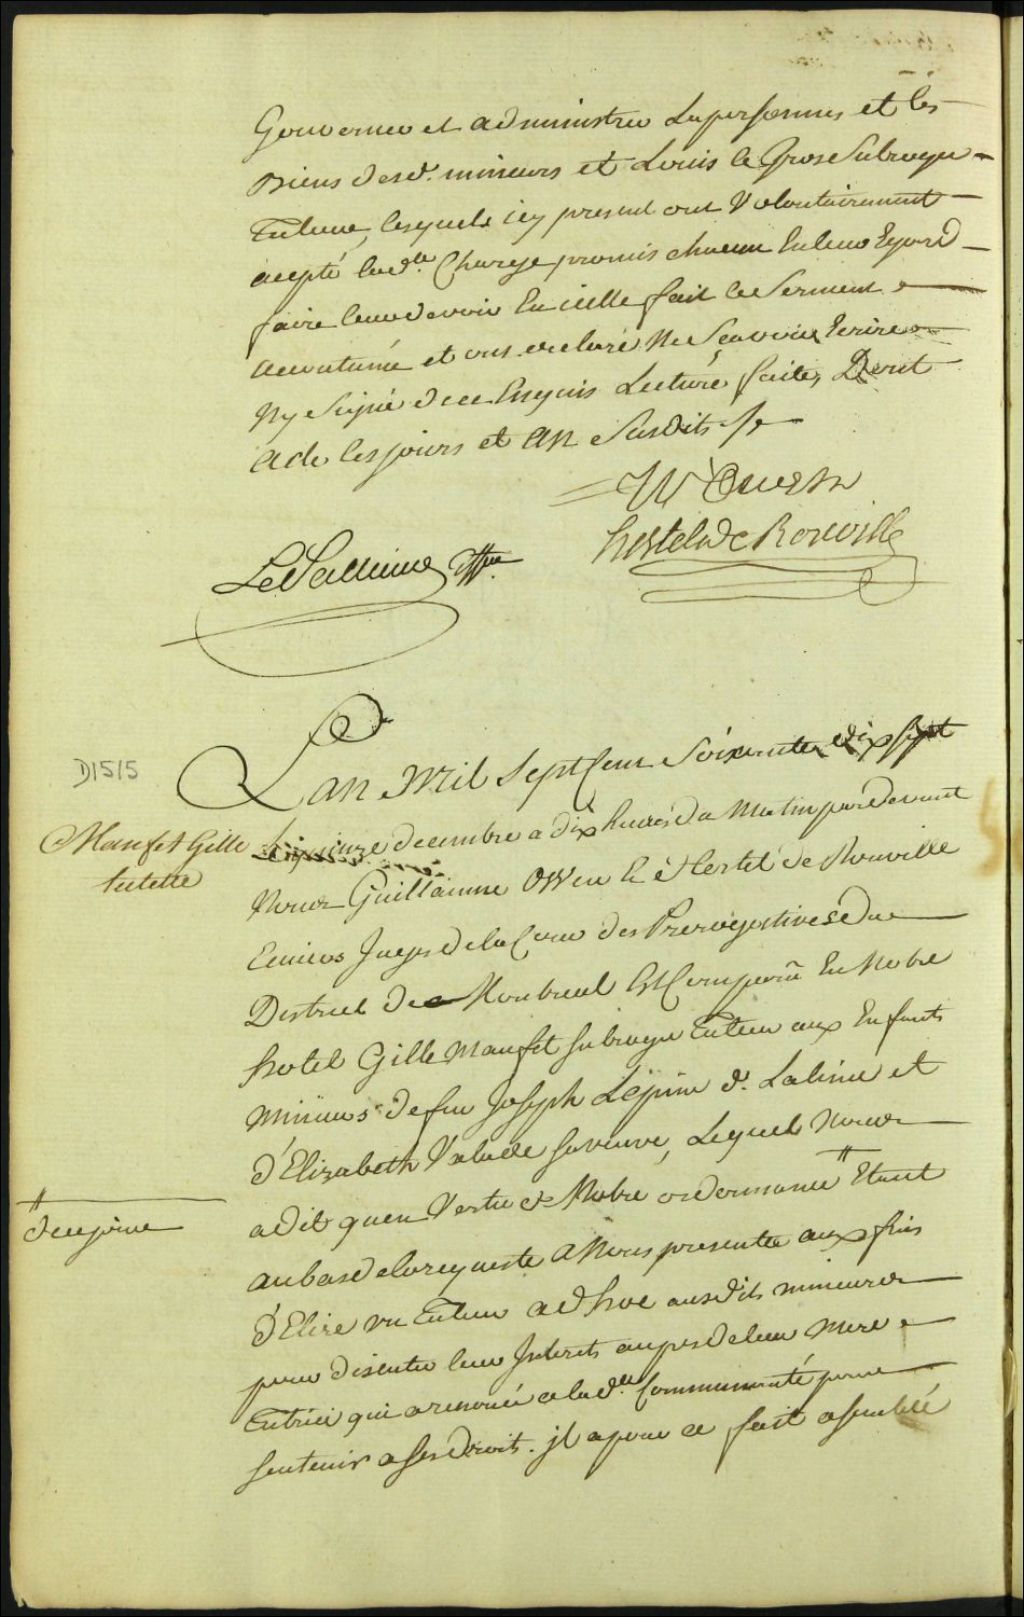 Gouverner et administrer les personnes et les
Biens desd. mineurs et Louis le Gros Subroger
Tuteur, lesquels icy present ont Volontairement
acepté lad.te Charge promis chacun En leur Egard
faire leur devoir En icelle fait le Serment
acoutumé et ont declaré Ne Sçavoir Ecrire
Ny Signé de ce Enquis Lecture faite, Dont
acte les jours et an Susdits
W Owen
hertel de Rouville
LePallieur Gffier
D1515
L'an Mil Sept Cent Soixante dix Sept
Manfet Gille
tutelle
Le quinze decembre a dix heures du Matin pardevant
Nous Guillaume Owen & Hertel de Rouville
Ecuiers Juges de la Cour des Prerogatives du
District de Montreal Est Comparu En Notre
hotel Gille Manfet subroger Tuteur aux Enfants
Mineurs de feu Joseph Lepine d. Lalime et
d'Elizabeth Valade sa veuve, Lequel Nous
a dit qu'en Vertu de Notre ordonnance Etant
de ce jour
au bas de la requeste a Nous presentée aux fins
d'Elire un Tuteur ad hoc ausdits mineurs
pour discuter leur Interets aupres de leur Mere
Tutrice qui a renoncé a lad.te Communauté pour
s'en tenir a ses droits. il a pour ce fait assemblé